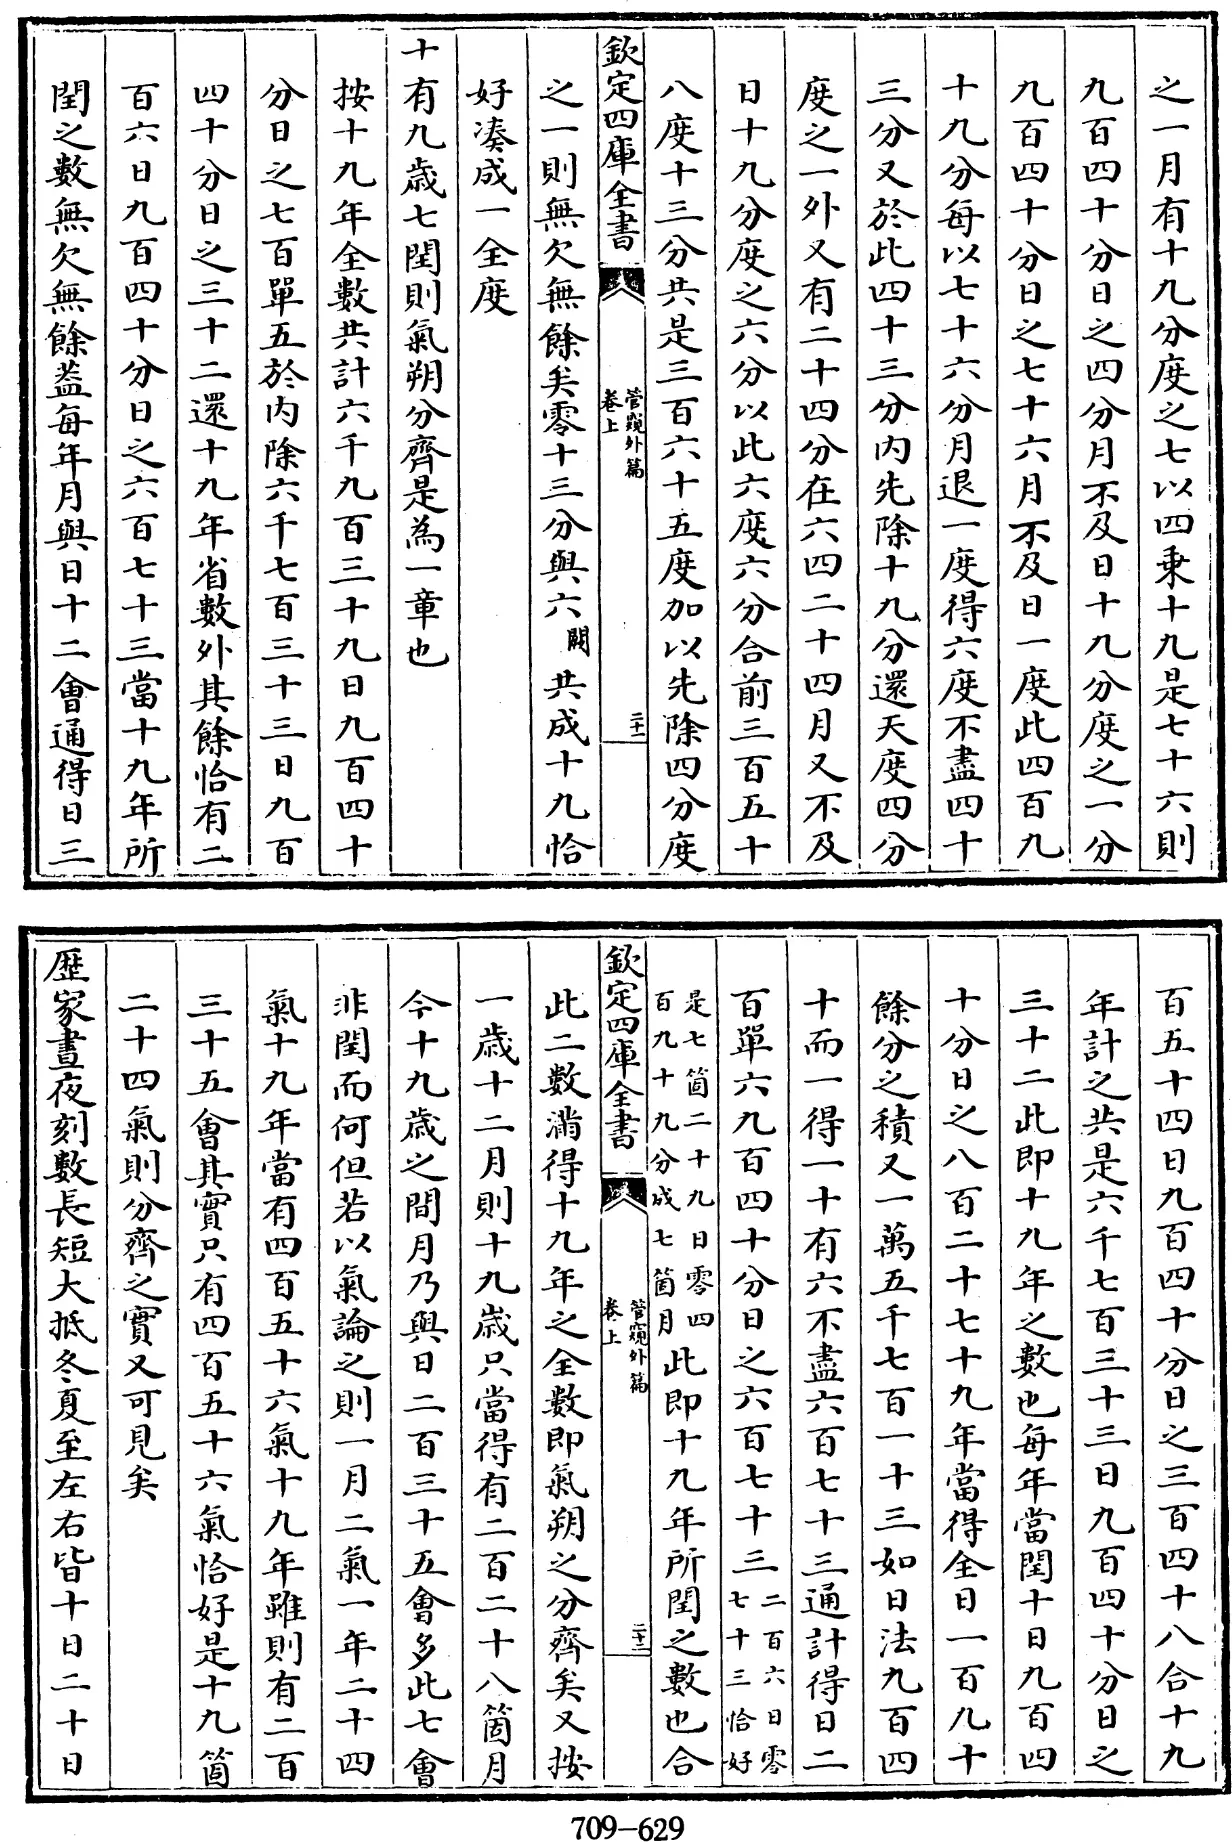 之一月有十九分度之七以四乗十九是七十六則
九百四十分日之四分月不及日十九分度之一分
九百四十分日之七十六月不及日一度此四百九
十九分每以七十六分月退一度得六度不盡四十
三分又於此四十三分内先除十九分還天度四分
度之一外又有二十四分在六四二十四月又不及
日十九分度之六分以此六度六分合前三百五十
八度十三分共是三百六十五度加以先除四分度
欽定四庫全書
管窺外篇
卷上
二十一
之一則無欠無餘矣零十三分與六闕共成十九恰
好凑成一全度
十有九歲七閏則氣朔分齊是為一章也
按十九年全數共計六千九百三十九日九百四十
分日之七百單五於内除六千七百三十三日九百
四十分日之三十二還十九年省數外其餘恰有二
百六日九百四十分日之六百七十三當十九年所
閏之數無欠無餘葢每年月與日十二會通得日三
百五十四日九百四十分日之三百四十八合十九
年計之共是六千七百三十三日九百四十分日之
三十二此即十九年之數也每年當閏十日九百四
十分日之八百二十七十九年當得全日一百九十
餘分之積又一萬五千七百一十三如日法九百四
十而一得一十有六不盡六百七十三通計得日二
百單六九百四十分日之六百七十三二百六日零七十三恰好
是七箇二十九日零四百九十九分成七箇月此即十九年所閏之數也合
欽定四庫全書
管窺外篇
卷上
二十二
此二數滿得十九年之全數即氣朔之分齊矣又按
一歲十二月則十九歲只當得有二百二十八箇月
今十九歲之間月乃與日二百三十五會多此七會
非閏而何但若以氣論之則一月二氣一年二十四
氣十九年當有四百五十六氣十九年雖則有二百
三十五會其實只有四百五十六氣恰好是十九箇
二十四氣則分齊之實又可見矣
歷家晝夜刻數長短大抵冬夏至左右皆十日二十日
709-629